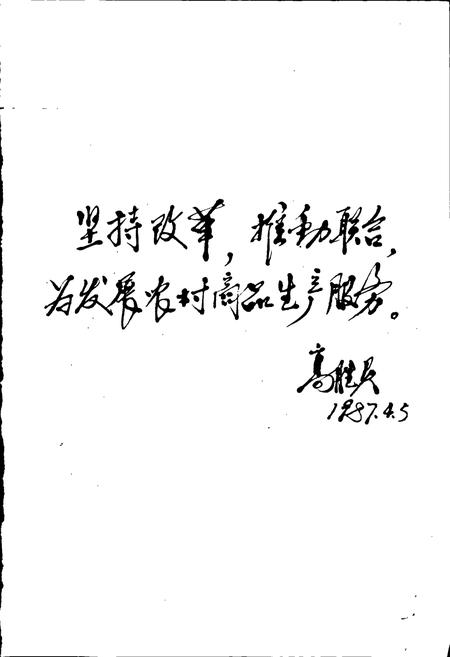 坚持改革，推动联合，
为发展农村商品生产服务。
高胜员
1987.4.5